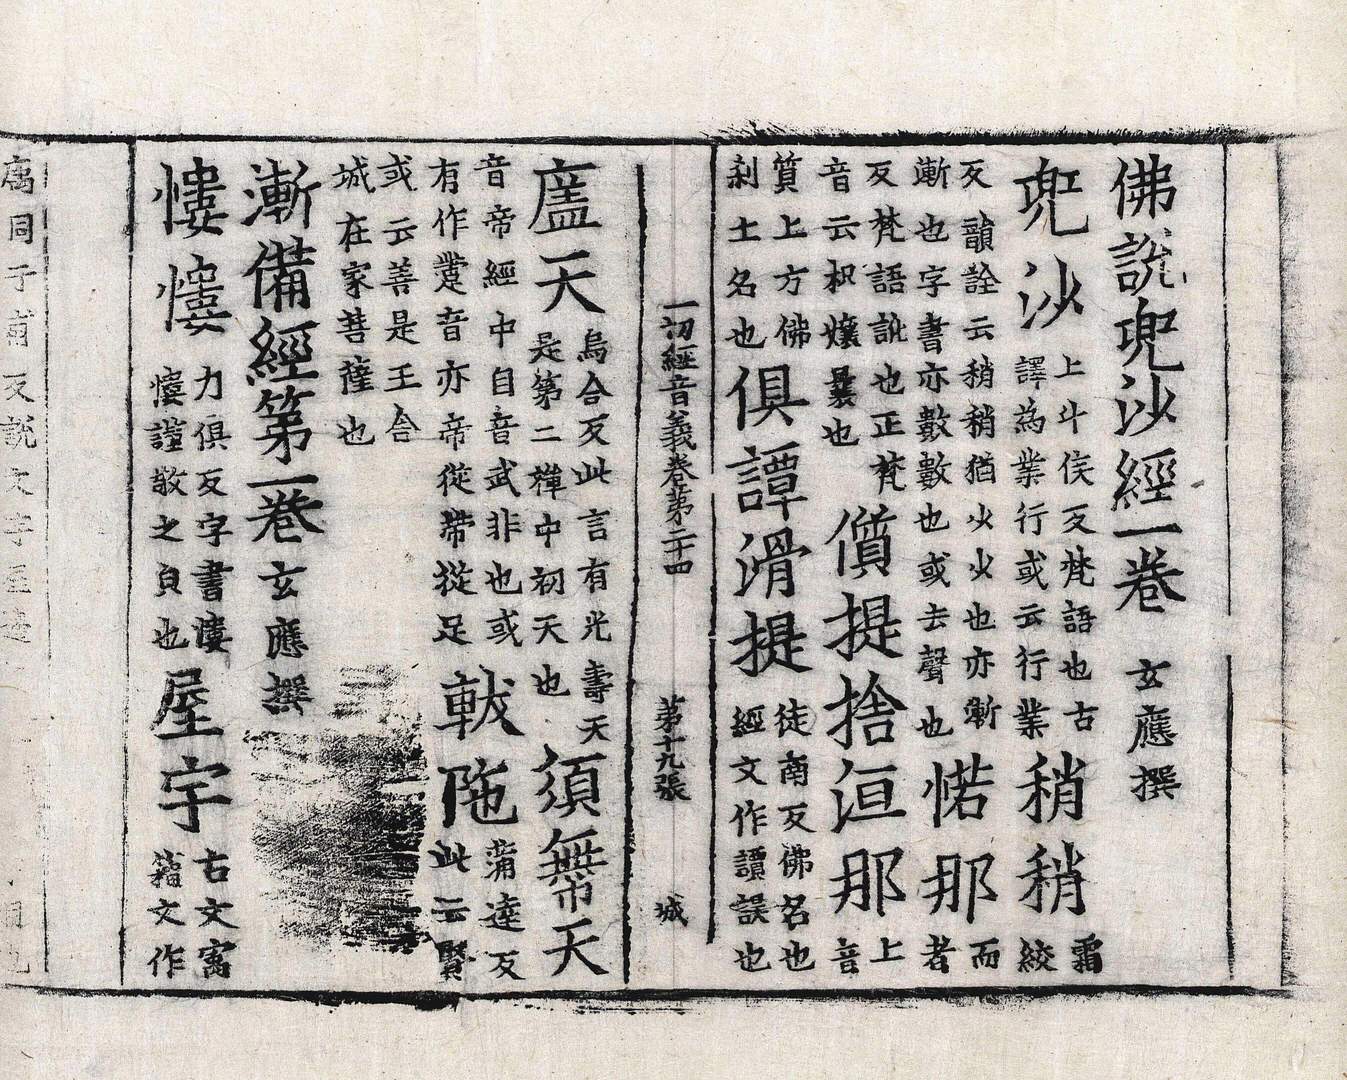 佛說兜沙經一卷 玄應撰
兜沙 上斗侯反梵語也古
譯為業行或云行業 稍稍 霜
絞
反韻詮云稍稍猶少少也亦漸
漸也字書亦數數也或去聲也 偌那 而
者
反梵語訛也正梵
音云枳孃曩也 儐提捨洹那 上
音
質上方佛
剎土名也 俱譚滑提 徒南反佛名也
經文作讀誤也
一切經音義卷第二十四 第十九張 城
廅天 烏合反此言有光壽天
是第二禪中初天也 須無帶天
音帝經中自音武非也或
有作疐音亦帝從帶從足 軷陁 蒲達反
此云賢
或云善是王舍
城在家菩薩也
漸備經第一卷 玄應撰
慺慺 力俱反字書慺
慺謹敬之皃也 屋宇 古文寓
籀文作
㝢同于甫反說文宇屋邊